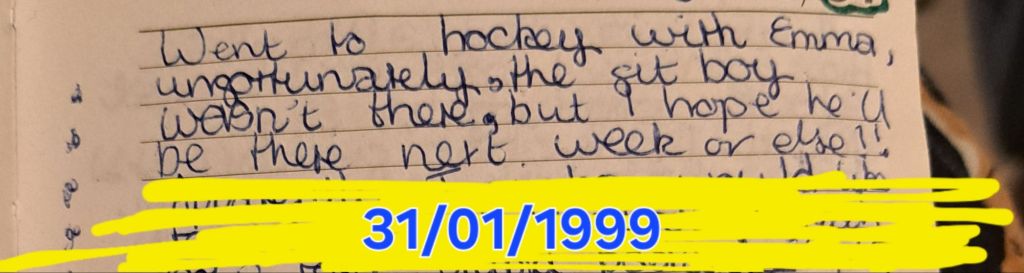 Went to hockey with Emma,
ungortunately, the git boy
wasn't there, but I hope he'll
be there next week or else!!
31/01/1999